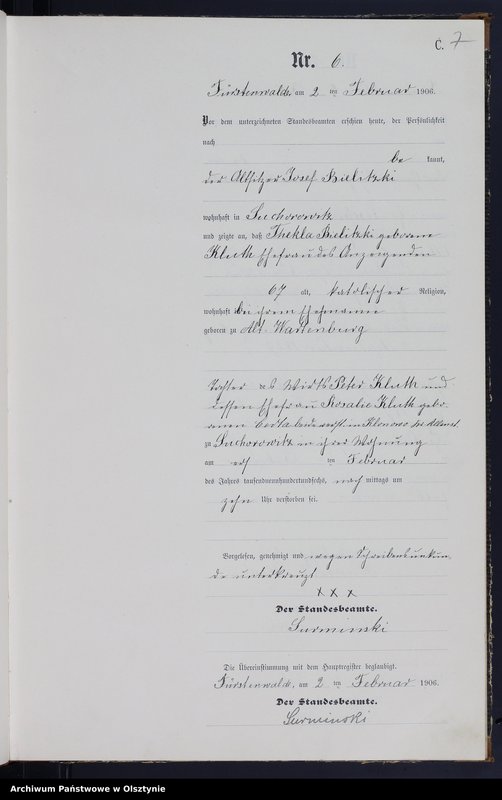 C. 7
Nr. 6.
Fürstenwalde, am 2 ten Februar 1906.
Vor dem unterzeichneten Standesbeamten erschien heute, der Persönlichkeit
nach
be kannt,
der Altsitzer Josef Bielitzki
wohnhaft in Suchorowitz
und zeigte an, daß Thekla Bielitzki geborene
Kluth Ehefrau des Anzeigenden
67 alt, katolischer Religion,
wohnhaft bei ihrem Ehemanne
geboren zu Alt Wartenburg
Tochter des Wirts Peter Kluth und
dessen Ehefrau Rosalie Kluth gebo-
renen
zu Suchorowitz in ihrer Wohnung
am ersten Februar
des Jahres tausendneunhundertundsechs, nach mittags um
zehn Uhr verstorben sei.
Vorgelesen, genehmigt und wegen Schreibensunkun-
de unterkreuzt
x x x
Der Standesbeamte.
Surminski
Die Übereinstimmung mit dem Hauptregister beglaubigt.
Fürstenwalde, am 2 ten Februar 1906.
Der Standesbeamte.
Surminski
Archiwum Państwowe w Olsztynie